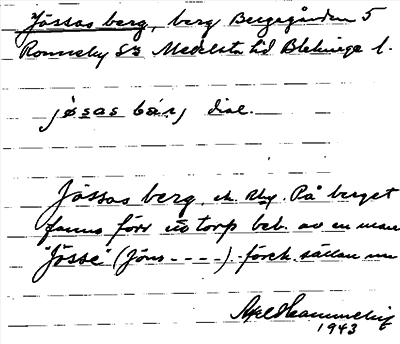 Jössas berg, berg Bergsgården 5
Ronneby Sn Medelsta hd Blekinge l.
jøsas bárj dial.
Jössas berg, På berget
fanns förr ett torp beb. av en man
"Jösse" (Jöns - - - -). förek. sällan nu
Axel
1943